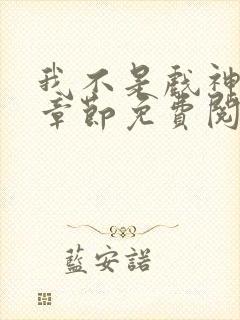 我不是戲神
章節免費閱
藍安諾